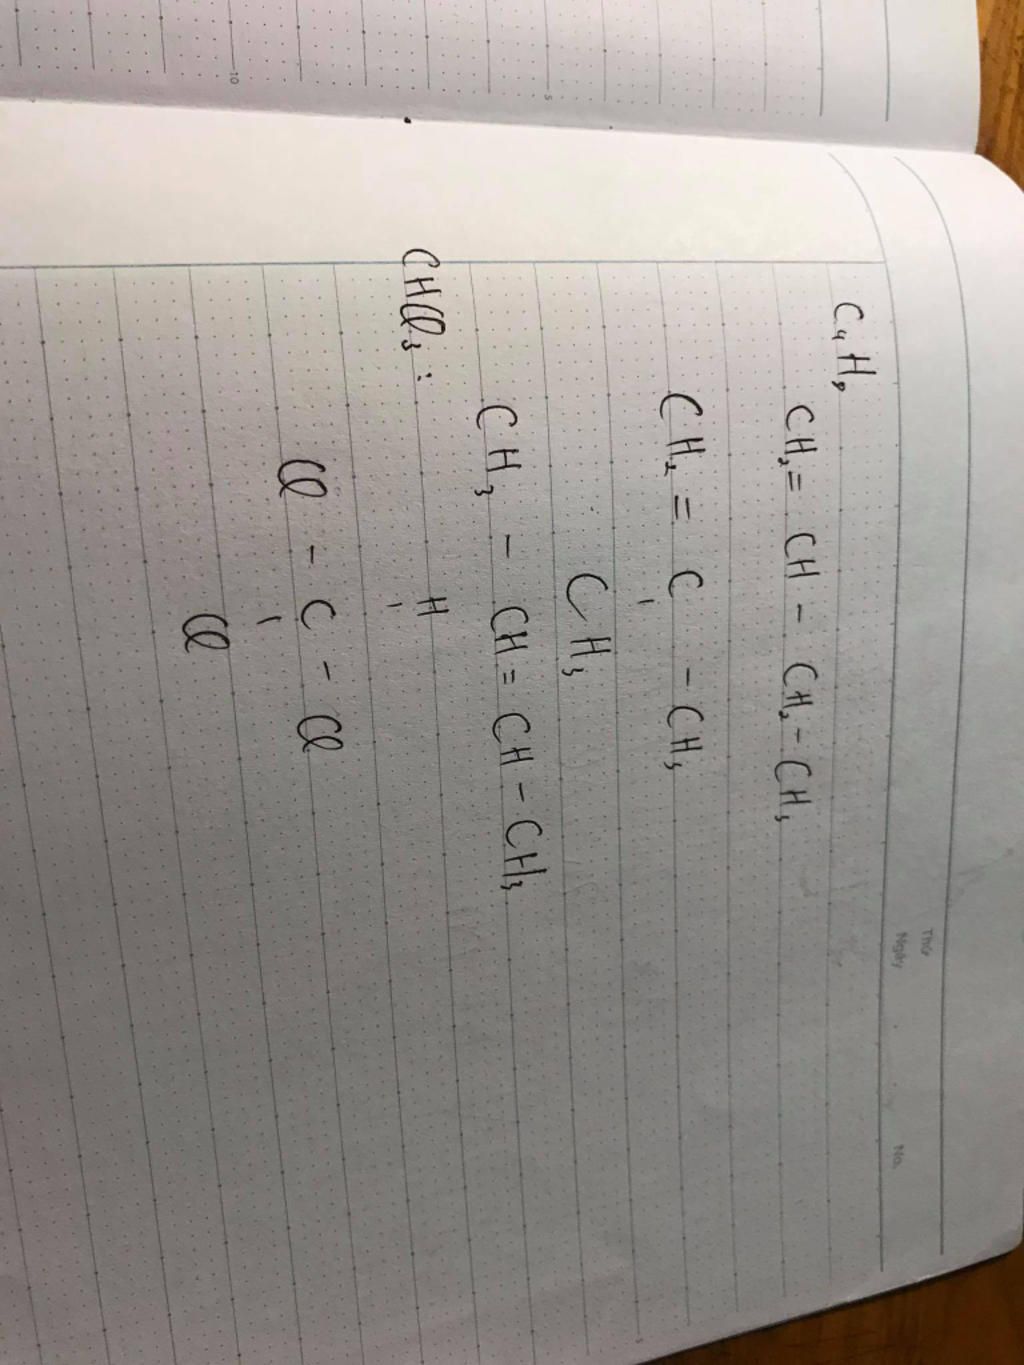 Thứ
Ngày
No.
C₄H₈
CH₂ = CH - CH₂ - CH₃
CH₂ = C - CH₃
CH₃
CH₃ - CH = CH - CH₃
CHCl₃ :
H
Cl - C - Cl
Cl
5
10